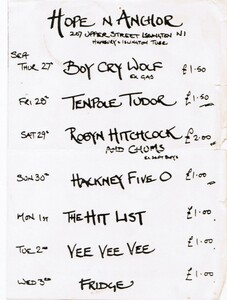 HOPE N ANCHOR
207 UPPER STREET ISLINGTON N1
HIGHBURY & ISLINGTON TUBE
THUR 27th BOY CRY WOLF £1.50
EX GAS
FRI 28th TENPOLE TUDOR £1.50
SAT 29th ROBYN HITCHCOCK £2.00
AND CHUMS
EX SOFT BOYS
SUN 30th HACKNEY FIVE O £1.00
MON 1st THE HIT LIST £1.00
TUE 2nd VEE VEE VEE £1.00
WED 3rd FRIDGE £1.00